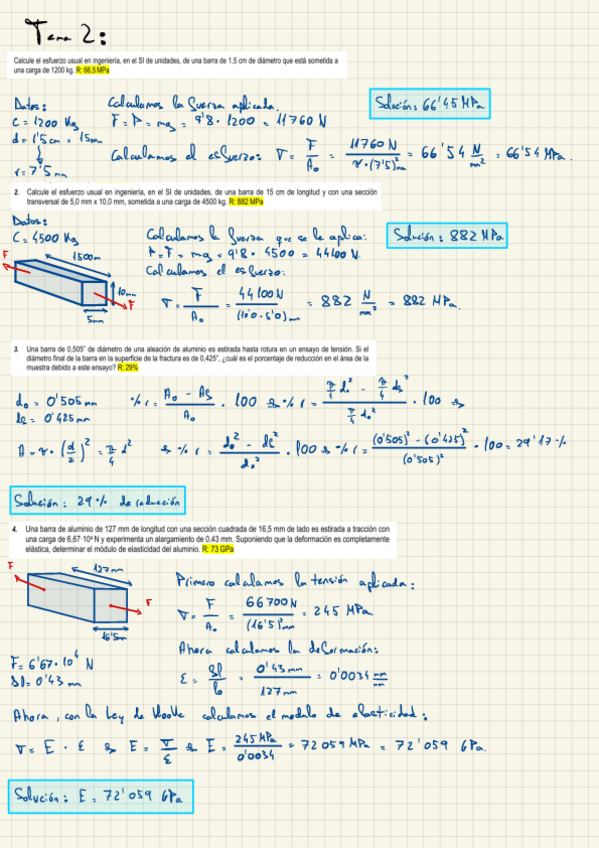 Tema 2:
Calcule el esfuerzo usual en ingeniería, en el SI de unidades, de una barra de 1,5 cm de diámetro que está sometida a
una carga de 1200 kg. R: 66,5 MPa
Datos:
C = 1200 Kg
d = 1'5 cm = 15 mm
r = 7'5 mm
Calculamos la fuerza aplicada.
F = P = mg = 9'8 · 1200 = 11760 N
Solución: 66'45 MPa
Calculamos el esfuerzo: σ = F / A₀ = 11760 N / π·(7'5)² mm = 66'54 N/mm² = 66'54 MPa.
2. Calcule el esfuerzo usual en ingeniería, en el SI de unidades, de una barra de 15 cm de longitud y con una sección
transversal de 5,0 mm x 10,0 mm, sometida a una carga de 4500 kg. R: 882 MPa
Datos:
C = 4500 Kg
F
1500m
10mm
F
5mm
Calculamos la fuerza que se le aplica:
P = F = mg = 9'8 · 4500 = 44100 N.
Solución: 882 MPa
Calculamos el esfuerzo:
σ = F / A₀ = 44100 N / (10'0 · 5'0) mm = 882 N/mm² = 882 MPa.
3. Una barra de 0,505" de diámetro de una aleación de aluminio es estirada hasta rotura en un ensayo de tensión. Si el
diámetro final de la barra en la superficie de la fractura es de 0,425", ¿cuál es el porcentaje de reducción en el área de la
muestra debido a este ensayo? R: 29%
d₀ = 0'505 mm
df = 0'425 mm
% r = (A₀ - Af) / A₀ · 100 → % r = (π/4 d₀² - π/4 df²) / (π/4 d₀²) · 100 →
A = π · (d/2)² = π/4 d² → % r = (d₀² - df²) / d₀² · 100 → % r = ((0'505)² - (0'425)²) / (0'505)² · 100 = 29'17 %
Solución: 29 % de reducción
4. Una barra de aluminio de 127 mm de longitud con una sección cuadrada de 16,5 mm de lado es estirada a tracción con
una carga de 6,67·10⁴ N y experimenta un alargamiento de 0,43 mm. Suponiendo que la deformación es completamente
elástica, determinar el módulo de elasticidad del aluminio. R: 73 GPa
F
127mm
F
16'5mm
F = 6'67 · 10⁴ N
Δl = 0'43 mm
Primero calculamos la tensión aplicada:
σ = F / A₀ = 66700 N / (16'5)² mm = 245 MPa
Ahora calculamos la deformación:
ε = Δl / l₀ = 0'43 mm / 127 mm = 0'0034 mm/mm
Ahora, con la Ley de Hooke calculamos el modulo de elasticidad:
σ = E · ε → E = σ / ε → E = 245 MPa / 0'0034 = 72059 MPa = 72'059 GPa.
Solución: E = 72'059 GPa